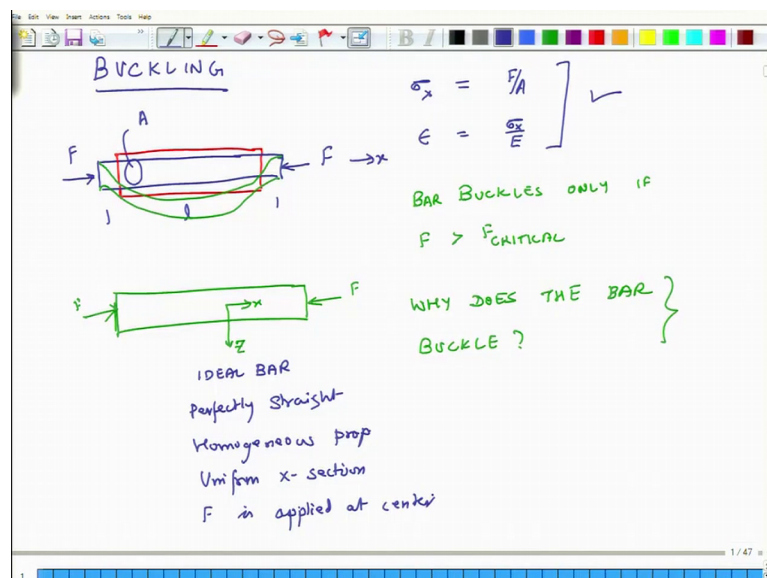 File Edit View Insert Actions Tools Help
BUCKLING
A
F
F → x
l
σx = F/A
ϵ = σx/E
BAR BUCKLES ONLY IF
F > FCRITICAL
F
F
x
z
WHY DOES THE BAR
BUCKLE ?
IDEAL BAR
Perfectly Straight
Homogeneous prop
Uniform x-section
F is applied at center
1 / 47
1